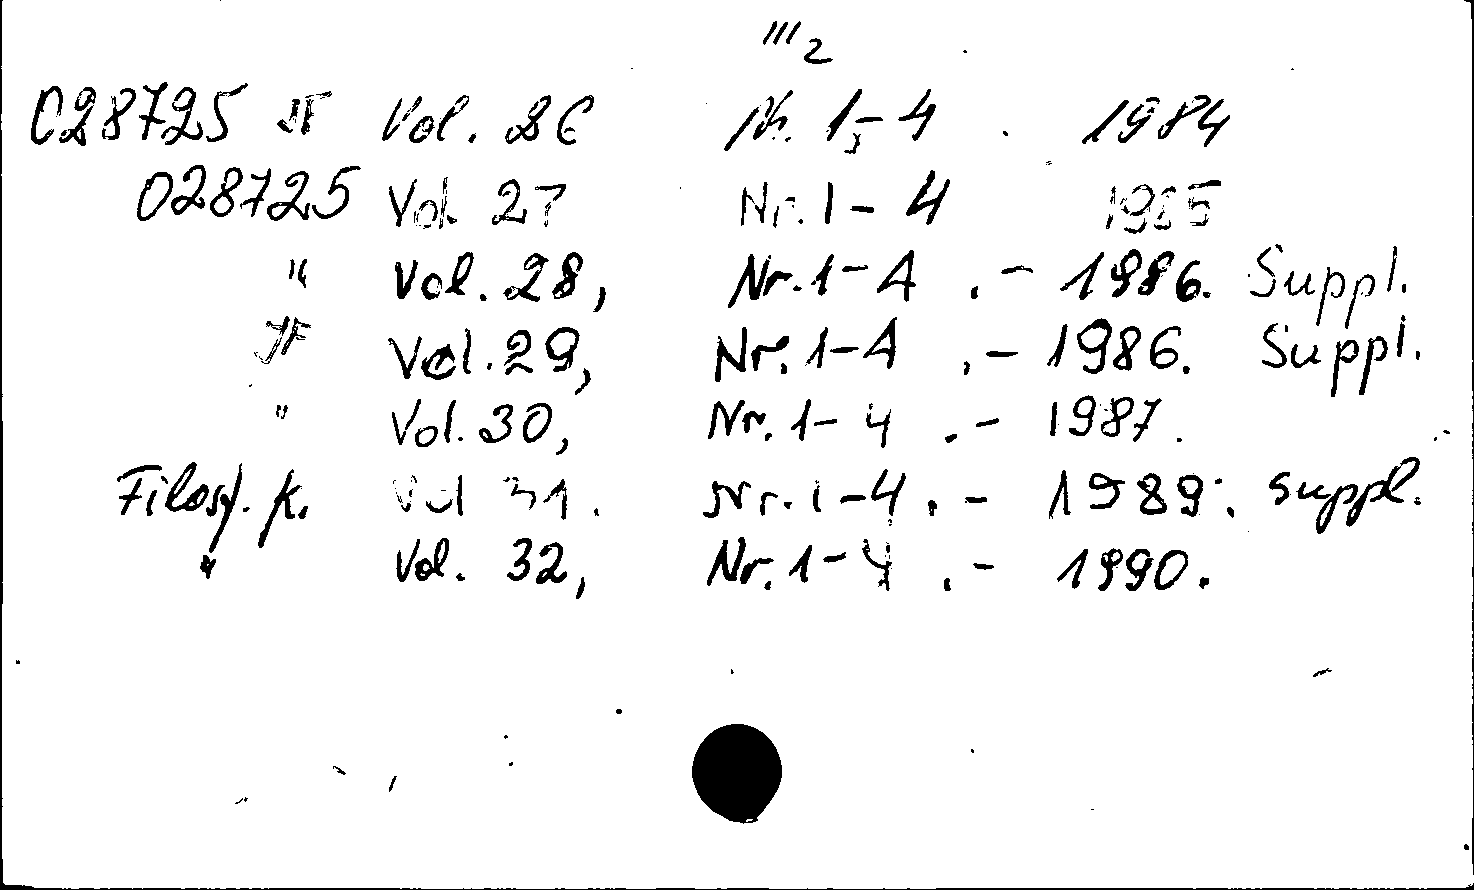 III 2
028725 JF Vol. 26 Nr. 1-4 1984
028725 Vol. 27 Nr. 1-4 1985
" Vol. 28, Nr. 1-4 .- 1986. Suppl.
JF Vol. 29, Nr. 1-4 .- 1986. Suppl.
" Vol. 30, Nr. 1-4 .- 1987.
Filosf. k. Vol 31. Nr. 1-4. - 1989. Suppl.
" Vol. 32, Nr. 1-4 .- 1990.